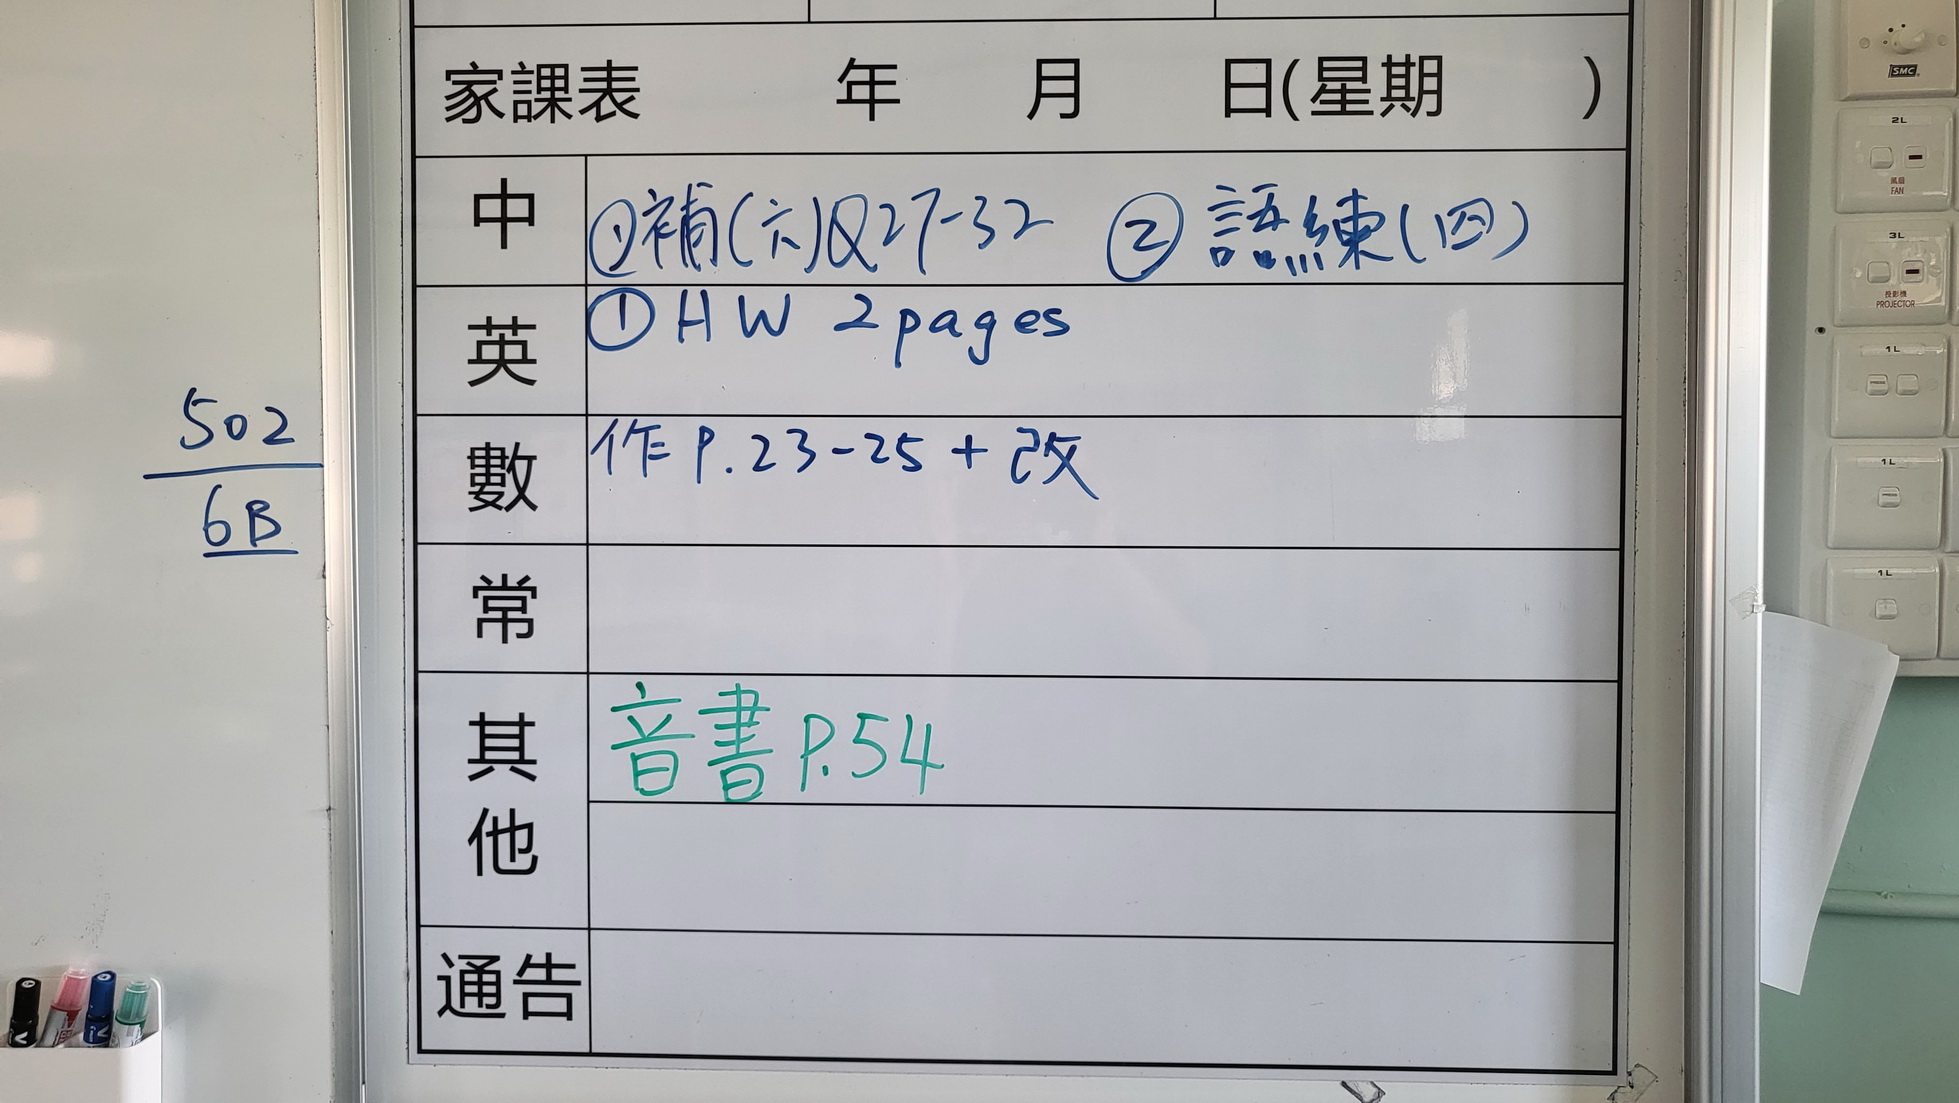 家課表 年 月 日(星期 )
中 ①補(六)Q27-32 ②語練(四)
英 ①HW 2pages
數 作P.23-25+改
常
其他 音書P.54
通告
502
6B
SMC
2L
風扇
FAN
3L
投影機
PROJECTOR
1L
1L
1L